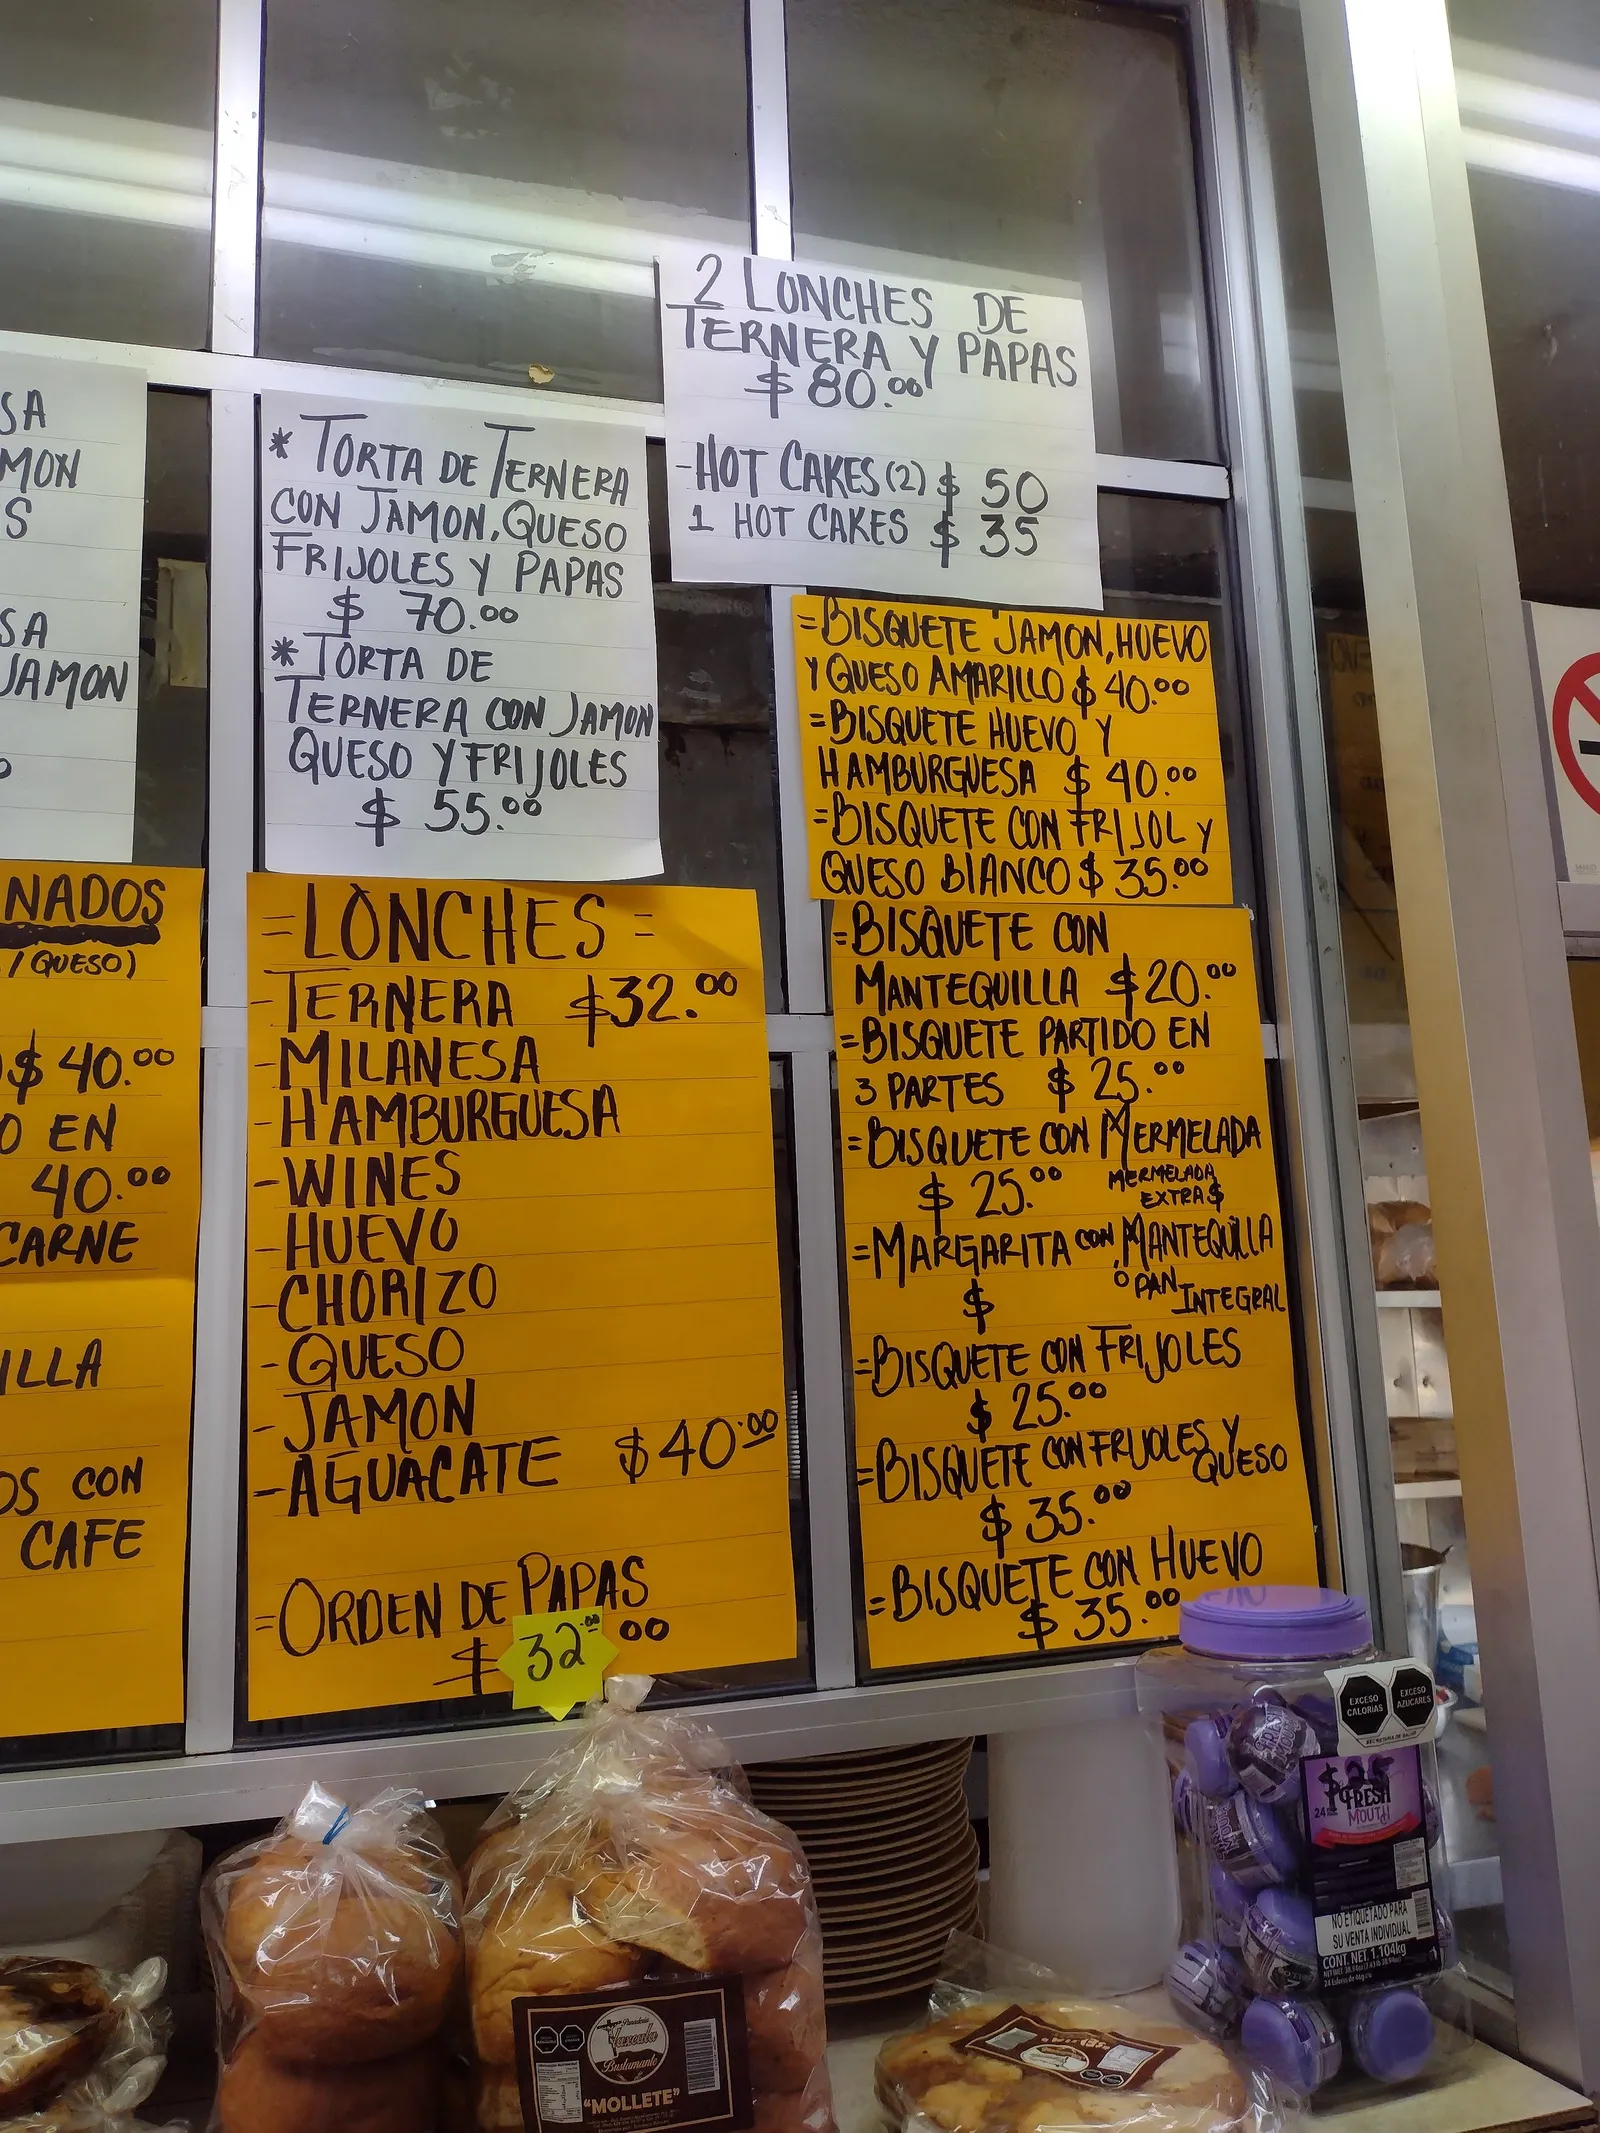 SA
MON
S
SA
JAMON
* TORTA DE TERNERA
CON JAMON, QUESO
FRIJOLES Y PAPAS
$ 70.00
* TORTA DE
TERNERA CON JAMON
QUESO Y FRIJOLES
$ 55.00
2 LONCHES DE
TERNERA Y PAPAS
$ 80.00
-HOT CAKES (2) $ 50
1 HOT CAKES $ 35
=BISQUETE JAMON, HUEVO
Y QUESO AMARILLO $ 40.00
=BISQUETE HUEVO Y
HAMBURGUESA $ 40.00
=BISQUETE CON FRIJOL Y
QUESO BLANCO $ 35.00
NADOS
/ QUESO)
$ 40.00
O EN
40.00
CARNE
ILLA
OS CON
CAFE
=LONCHES=
-TERNERA $32.00
-MILANESA
-HAMBURGUESA
-WINES
-HUEVO
-CHORIZO
-QUESO
-JAMON
-AGUACATE $40.00
=ORDEN DE PAPAS
$ 32.00 00
=BISQUETE CON
MANTEQUILLA $20.00
=BISQUETE PARTIDO EN
3 PARTES $ 25.00
=BISQUETE CON MERMELADA
$ 25.00 MERMELADA
EXTRA $
=MARGARITA CON MANTEQUILLA
$ O PAN INTEGRAL
=BISQUETE CON FRIJOLES
$ 25.00
=BISQUETE CON FRIJOLES Y
QUESO
$ 35.00
=BISQUETE CON HUEVO
$ 35.00
EXCESO
CALORÍAS
EXCESO
AZÚCARES
SECRETARÍA DE SALUD
FRESH
MOUTH
24
NO ETIQUETADO PARA
SU VENTA INDIVIDUAL
CONT. NET. 1.104kg
Panadería
Tlaxcala
Bustamante
"MOLLETE"